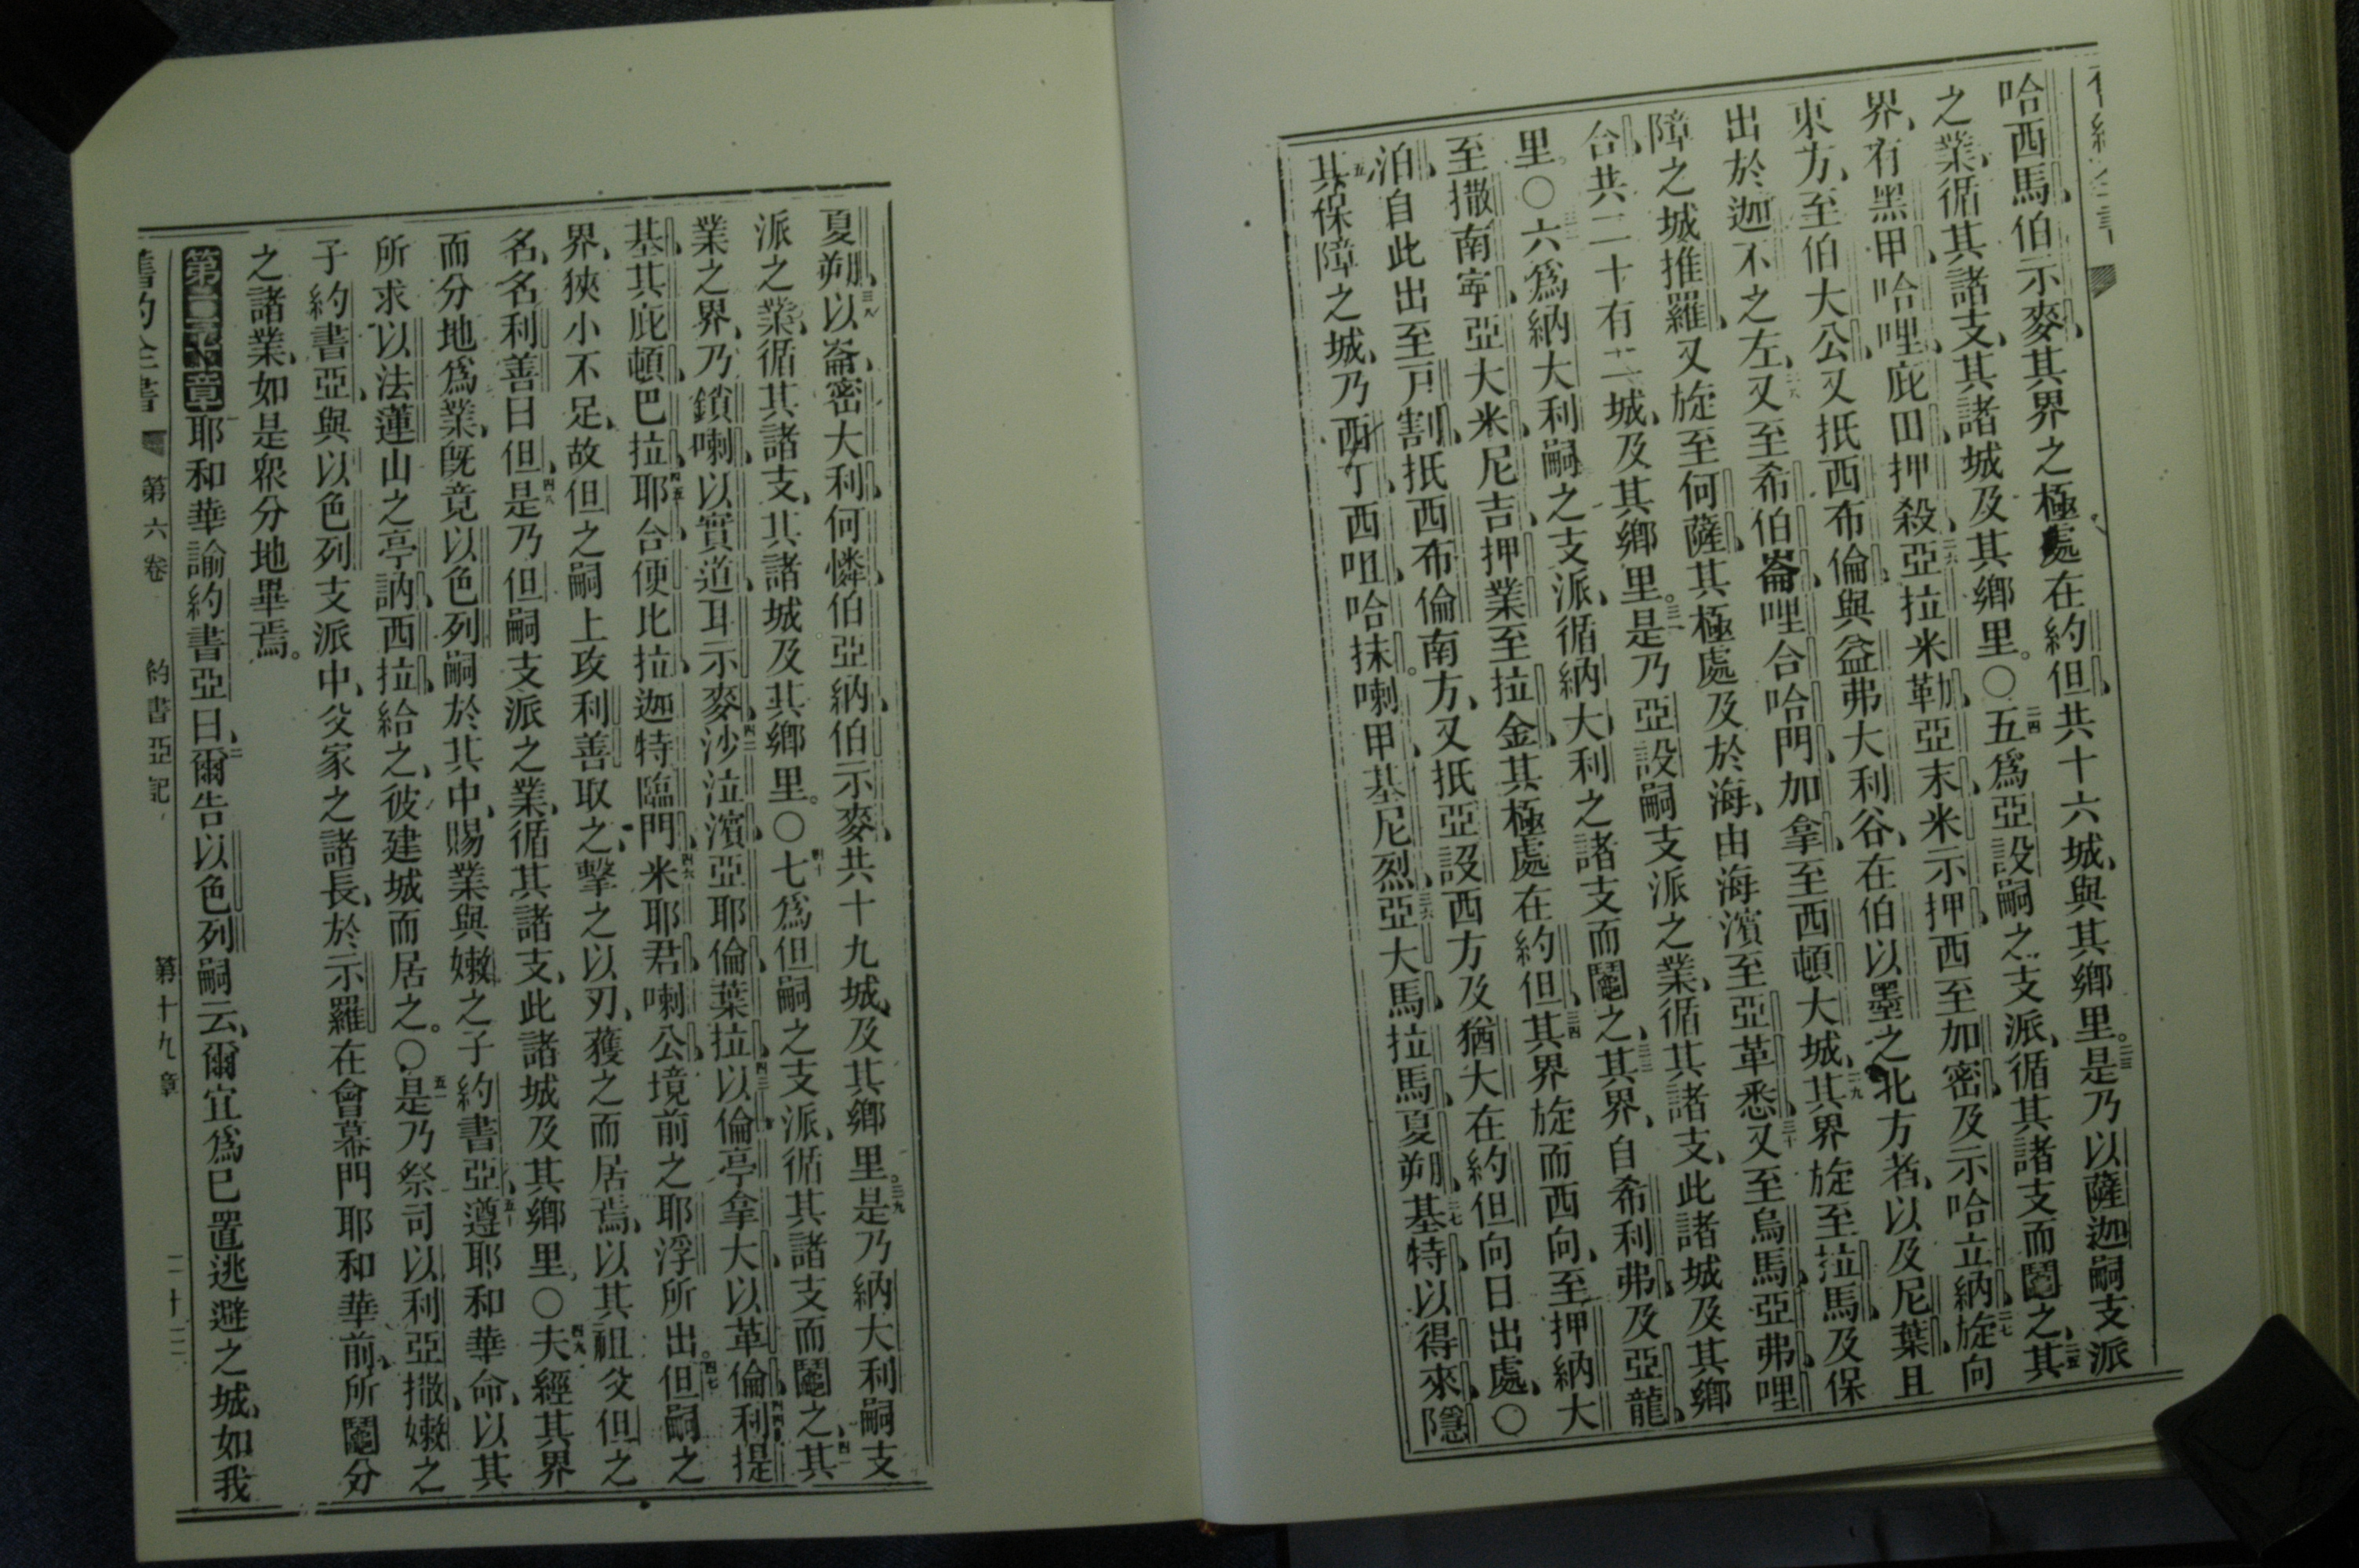 哈西馬、伯示麥、其界之極處在約但、共十六城、與其鄉里。是乃以薩迦嗣支派
之業、循其諸支、其諸城及其鄉里。○五爲亞設嗣之支派、循其諸支而鬮之、其
界、有黑甲、哈哩、庇田、押殺、亞拉米勒、亞末、米示押、西至加密、及示哈立納、旋向
東方、至伯大公、又抵西布倫、與益弗大利谷、在伯以墨之北方者、以及尼葉、且
出於迦不之左、又至希伯崙、哩合、哈門、加拿、至西頓大城、其界旋至拉馬、及保
障之城推羅、又旋至何薩、其極處及於海、由海濱至亞革悉、又至烏馬、亞弗、哩
合、共二十有二城、及其鄉里。是乃亞設嗣支派之業、循其諸支、此諸城及其鄉
里。○六爲納大利嗣之支派、循納大利之諸支而鬮之、其界、自希利弗、及亞龍、
至撒南寧、亞大米尼吉、押業、至拉金、其極處在約但、其界旋而西向、至押納大
泊、自此出至戸割、抵西布倫南方、又抵亞設西方、及猶大在約但向日出處、○
其保障之城、乃西丁、西咀、哈抹、喇甲、基尼烈、亞大馬、拉馬、夏朔、基特、以得來、隱
夏朔、以崙、密大利、何憐、伯亞納、伯示麥、共十九城、及其鄉里。是乃納大利嗣支
派之業、循其諸支、其諸城及其鄉里。○七爲但嗣之支派、循其諸支而鬮之、其
業之界、乃鎖喇、以實道、耳示麥、沙泣濱、亞耶倫、葉拉、以倫、亭拿大、以革倫、利提
基、其庇頓、巴拉、耶合、便比拉、迦特臨門、米耶君、喇公、境前之耶浮所出。但嗣之
界、狹小不足、故但之嗣上攻利善、取之、擊之以刃、獲之而居焉、以其祖父但之
名、名利善曰但、是乃但嗣支派之業、循其諸支、此諸城及其鄉里。○夫經其界
而分地爲業、旣竟、以色列嗣於其中、賜業與嫩之子約書亞、遵耶和華命、以其
所求以法蓮山之亭訥西拉、給之、彼建城而居之。○是乃祭司以利亞撒、嫩之
子約書亞、與以色列支派中、父家之諸長、於示羅在會幕門耶和華前、所鬮分
之諸業、如是衆分地畢焉。
耶和華諭約書亞曰、爾告以色列嗣云、爾宜爲已置逃避之城、如我
舊約全書 第六卷 約書亞記 第十九章 二十三